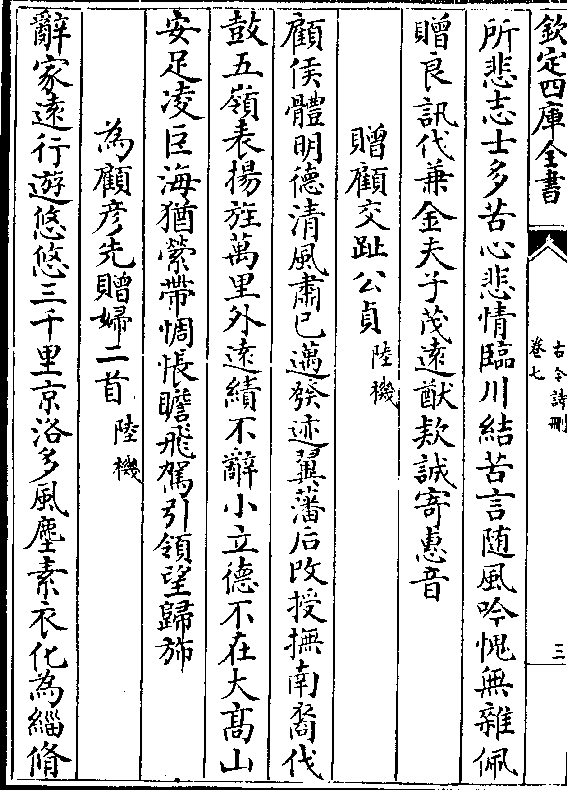 欽定四庫全書
古今詩刪
卷七
三
所悲志士多苦心悲情臨川結苦言随風吟愧無雜佩
贈良訊代兼金夫子茂遠猷欵誠寄惠音
贈顧交趾公貞
陸機
顧侯體明德清風肅已邁發迹翼藩后改授撫南裔伐
鼓五嶺表揚旌萬里外逺績不辭小立德不在大髙山
安足凌巨海猶縈帶惆悵瞻飛駕引領望歸旆
為顧彦先贈婦二首
陸機
辭家逺行遊悠悠三千里京洛多風塵素衣化為緇脩